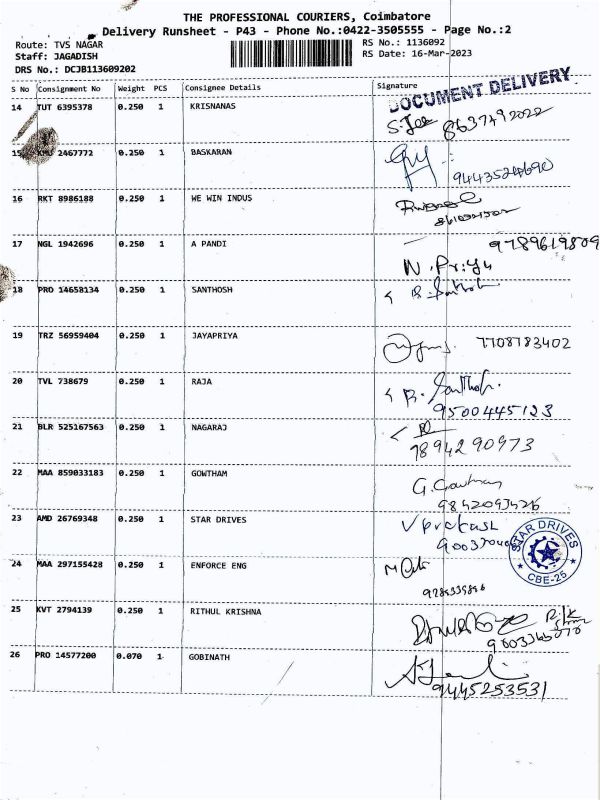 THE PROFESSIONAL COURIERS, Coimbatore
Delivery Runsheet - P43 - Phone No.:0422-3505555 - Page No.:2
Route: TVS NAGAR RS No.: 1136092
Staff: JAGADISH RS Date: 16-Mar-2023
DRS No.: DCJB113609202
S No Consignment No Weight PCS Consignee Details Signature
DOCUMENT DELIVERY
14 TUT 6395378 0.250 1 KRISNANAS
15 2467772 0.250 1 BASKARAN
9443524690
16 RKT 8986188 0.250 1 WE WIN INDUS
17 NGL 1942696 0.250 1 A PANDI 9789619809
N. Priya
18 PRO 14658134 0.250 1 SANTHOSH
19 TRZ 56959404 0.250 1 JAYAPRIYA
7708783402
20 TVL 738679 0.250 1 RAJA
9500445123
21 BLR 525167563 0.250 1 NAGARAJ
7894290973
22 MAA 859033183 0.250 1 GOWTHAM
G. Gowtham
23 AMD 26769348 0.250 1 STAR DRIVES V prakash
STAR DRIVES
CBE-25
24 MAA 297155428 0.250 1 ENFORCE ENG
25 KVT 2794139 0.250 1 RITHUL KRISHNA
26 PRO 14577200 0.070 1 GOBINATH
9445253531